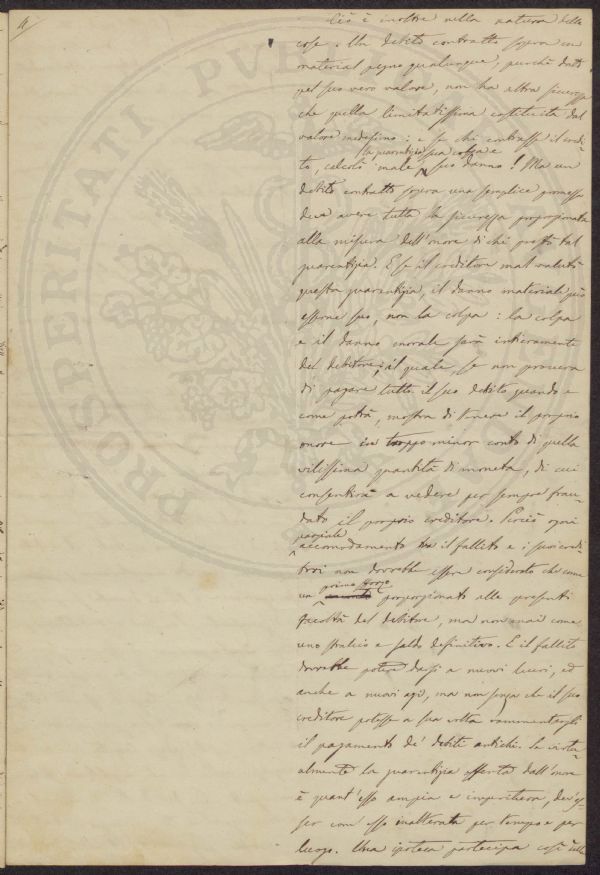 4
Ciò è inoltre nella natura delle
cose. Un debito contratto sopra un
material pegno qualunque, purchè dato
pel suo vero valore, non ha altra sicurezza
che quella limitatissima costituita dal
valore medesimo: e se chi contrasse il credi-
la guarentigia sua colpa e
to, calcolò male suo danno! Ma un
debito contratto sopra una semplice promessa
deve avere tutta la sicurezza proporzionata
alla misura dell'onore di chi prestò tal
guarentigia. E se il creditore mal valutò
questa guarentigia, il danno materiale può
esserne suo, non la colpa: la colpa
e il danno morale sarà interamente
del debitore; il quale, se non procura
di pagare tutto il suo debito quando e
come potrà, mostra di tenere il proprio
onore in troppo minor conto di quella
vilissima quantità di moneta, di cui
consentirà a vedere per sempre frau-
dato il proprio creditore. Perciò ogni
parziale
accomodamento tra il fallito e i suoi credi-
tori non dovrebbe esser considerato che come
primo sforzo
un proporzionato alle presenti
facoltà del debitore, ma non mai come
uno stralcio e saldo definitivo. E il fallito
dovrebbe potere darsi a nuovi lucri, ed
anche a nuovi agi, ma non senza che il suo
creditore potesse a sua volta rammentargli
il pagamento de' debiti antichi. Se virtu-
almente la guarentigia offerta dall'onore
è quant'esso ampia e imperitura, dev'es-
ser com'esso inalterata per tempo e per
luogo. Una ipoteca partecipa così
PROSPERITATI PVBLICAE